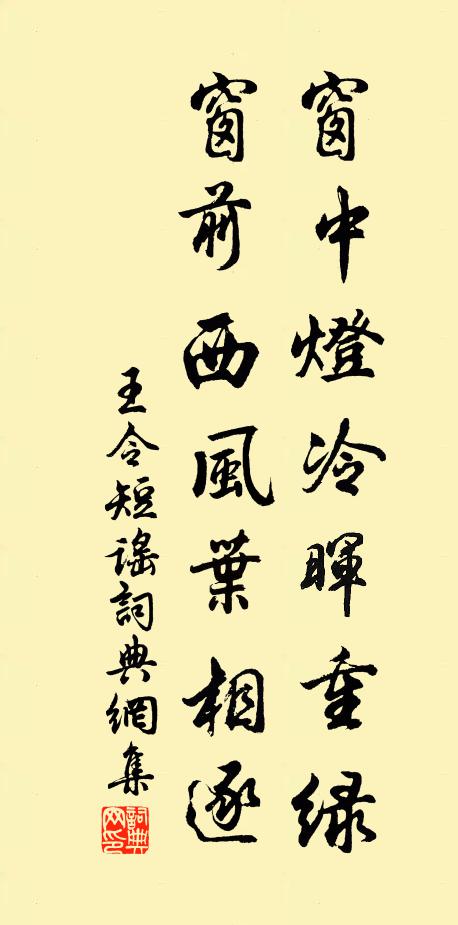 窗中燈冷暉重緑
窗前西風葉相逐
王令短謠詞典網集
詞典網印